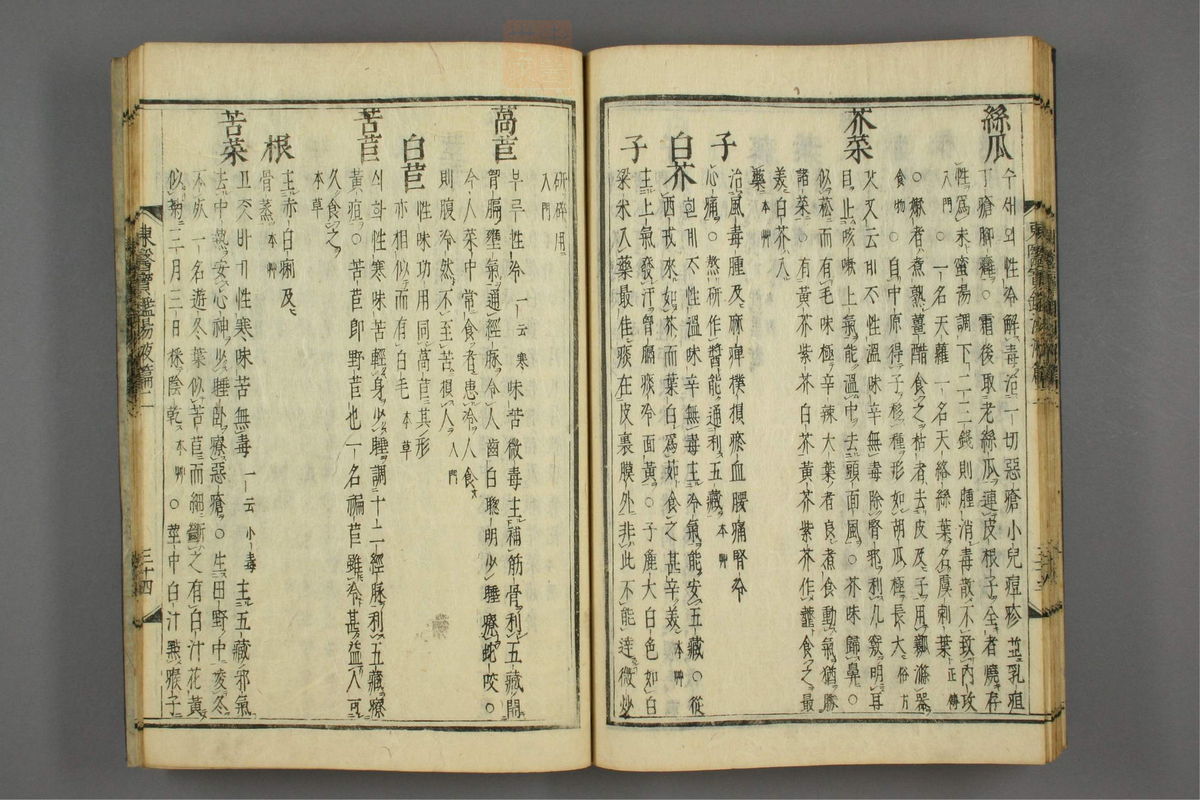 絲瓜 수세외性冷解毒治一切惡瘡小兒痘疹並乳疽
丁瘡脚癰○霜後取老絲瓜連皮根子全者燒存
性爲末蜜湯調下二三錢則腫消毒散不致內攻
入門○一名天蘿一名天絡絲葉名虞刺葉正傳
○嫩者煮熟薑醋食之枯者去皮及子用瓤滌器
食物○自中原得子移種形如胡瓜極長大俗方
芥菜 갓又云계ᄌᆞ性溫味辛無毒除腎邪利九竅明耳
目止咳嗽上氣能溫中去頭面風○芥味歸鼻○
似菘而有毛味極辛辣大葉者良煮食動氣猶勝
諸菜○有黃芥紫芥白芥黃芥紫芥作虀食之最
美白芥入
藥本艸
子 治風毒腫及麻痺撲損瘀血腰痛腎冷
心痛○熬研作醬能通利五藏本艸
白芥 흰계ᄌᆞ性溫味辛無毒主冷氣能安五藏○從
西戎來如芥而葉白爲茹食之甚辛美本艸
子 主上氣發汗胷膈痰冷面黃○子麁大白色如白
梁米入藥最佳痰在皮裏膜外非此不能達微炒
東醫寶鑑湯液篇二
研碎用
入門
萵苣 부루性冷一云寒味苦微毒主補筋骨利五藏開
胷膈壅氣通經脉令人齒白聰明少睡療蛇咬○
今人菜中常食者患冷人食
則腹冷然不至苦損人入門
白苣 性味功用同萵苣其形
亦相似而有白毛本草
苦苣 싀화性寒味苦輕身少睡調十二經脉利五藏療
黃疸○苦苣卽野苣也一名褊苣雖冷甚益人可
久食之
本草
根 主赤白痢及
骨蒸本艸
苦菜 고ᄌᆞᆺ바기性寒味苦無毒一云小毒主五藏邪氣
去中熱安心神少睡臥療惡瘡○生田野中凌冬
不死一名遊冬葉似苦苣而細斷之有白汁花黃
似菊三月三日採陰乾本艸○莖中白汁點瘊子
東醫寶鑑湯液篇二 三十四